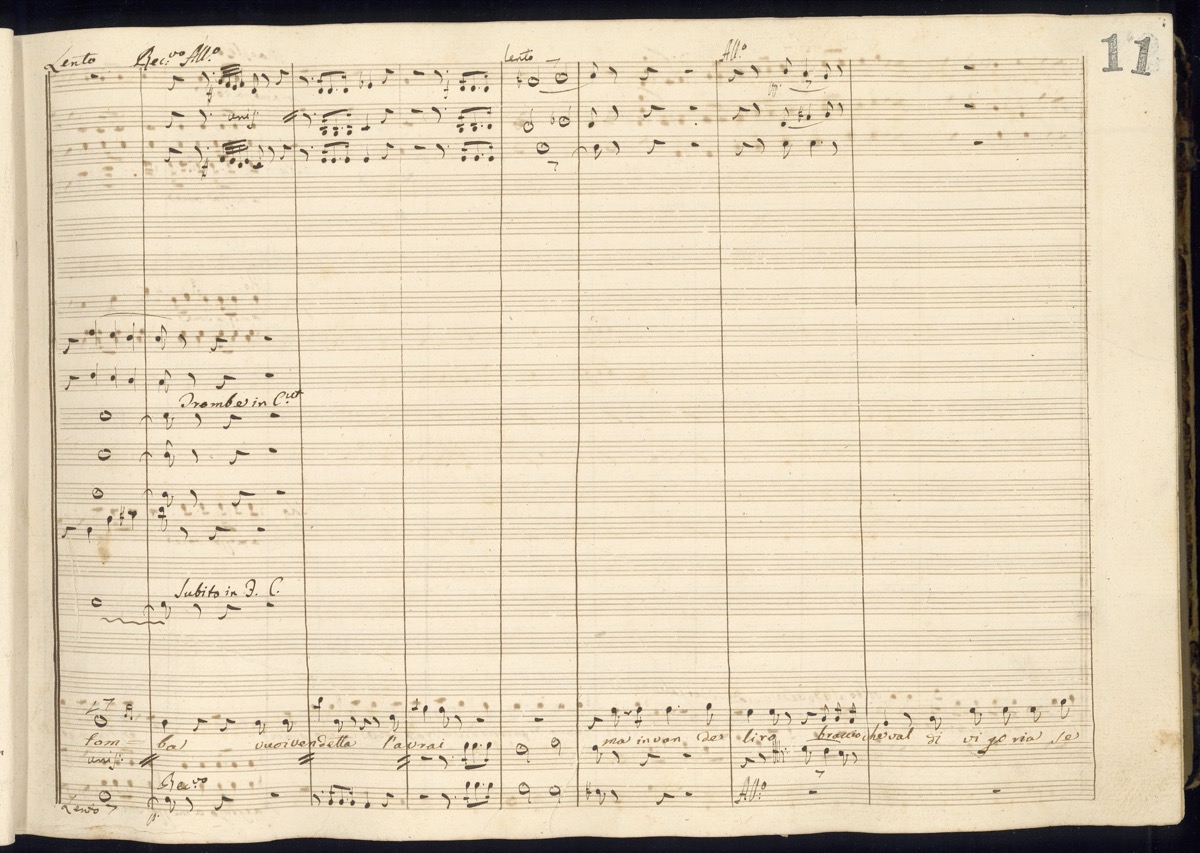 11
Lento Rec.vo All.o
lento
All.o
unis.
Trombe in C.ut
Subito in D. C.
tom ba vuoi vendetta l'avrai ma invan de liro braccio che val di vi go ria se
unis.
Rec.vo
All.o
Lento